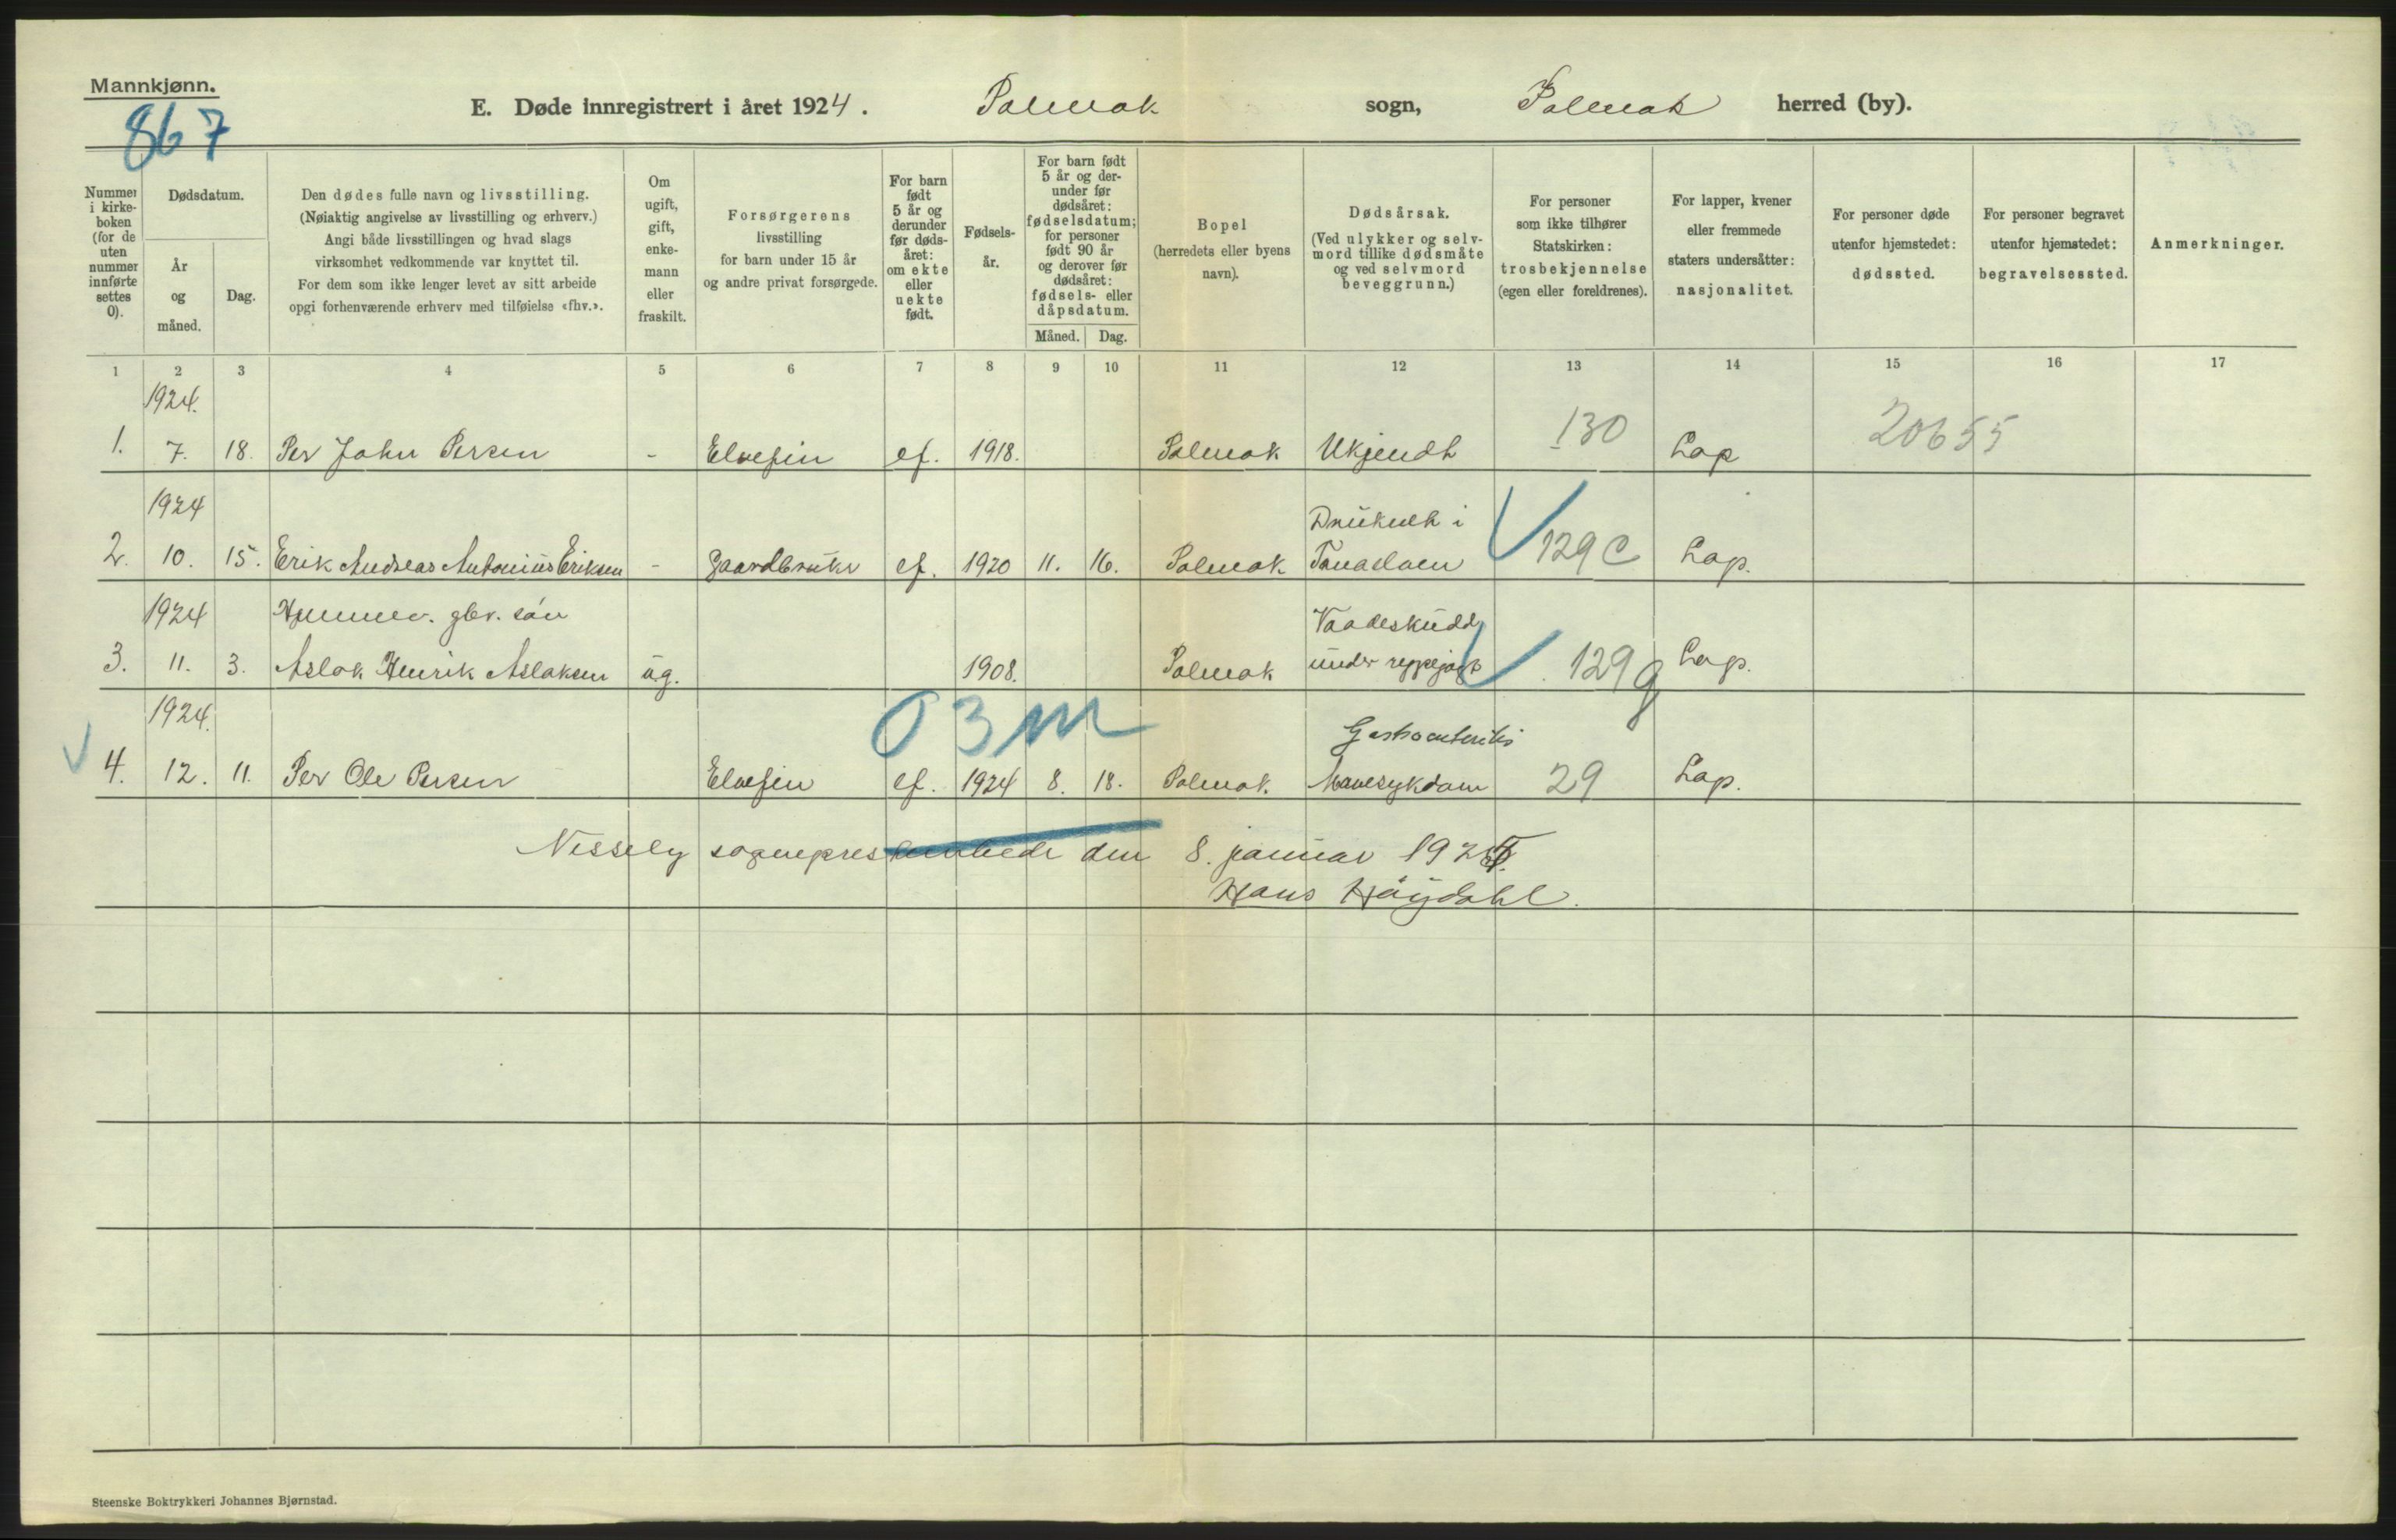 Mannkjønn.
867
E. Døde innregistrert i året 1924. Polmak sogn, Polmak herred (by).
Nummer i kirkeboken (for de uten nummer innførte settes 0).
Dødsdatum.
År og måned.
Dag.
Den dødes fulle navn og livsstilling.
(Nøiaktig angivelse av livsstilling og erhverv.)
Angi både livsstillingen og hvad slags
virksomhet vedkommende var knyttet til.
For dem som ikke lenger levet av sitt arbeide
opgi forhenværende erhverv med tilføielse «fhv.».
Om ugift, gift, enkemann eller fraskilt.
Forsørgerens
livsstilling
for barn under 15 år
og andre privat forsørgede.
For barn født 5 år og derunder før dødsåret: om ekte eller uekte født.
Fødselsår.
For barn født 5 år og derunder før dødsåret: fødselsdatum; for personer født 90 år og derover før dødsåret: fødsels- eller dåpsdatum.
Måned. Dag.
Bopel
(herredets eller byens
navn).
Dødsårsak.
(Ved ulykker og selvmord tillike dødsmåte og ved selvmord beveggrunn.)
For personer
som ikke tilhører
Statskirken:
trosbekjennelse
(egen eller foreldrenes).
For lapper, kvener
eller fremmede
staters undersåtter:
nasjonalitet.
For personer døde
utenfor hjemstedet:
dødssted.
For personer begravet
utenfor hjemstedet:
begravelsessted.
Anmerkninger.
1 2 3 4 5 6 7 8 9 10 11 12 13 14 15 16 17
1924.
1. 7. 18. Per John Persen - Elvefin ef. 1918. Polmak Ukjendt 130 Lap 20655
1924 Druknet i
2. 10. 15. Erik Andreas Antonius Eriksen - Gaardbruker ef. 1920 11. 16. Polmak Tanaelven 129 C Lap.
1924 gbr. søn Vaadeskudd
3. 11. 3. Aslak Henrik Aslaksen ug. 1908. Polmak under rypejagt 129 g Lap.
1924. 0 3 m Gastroenteritis
4. 12. 11. Per Ole Persen Elvefin ef. 1924 8. 18. Polmak. Mavesykdom 29 Lap.
Nesseby sogneprestembede den 8. januar 192
Hans Høydahl.
Steenske Boktrykkeri Johannes Bjørnstad.